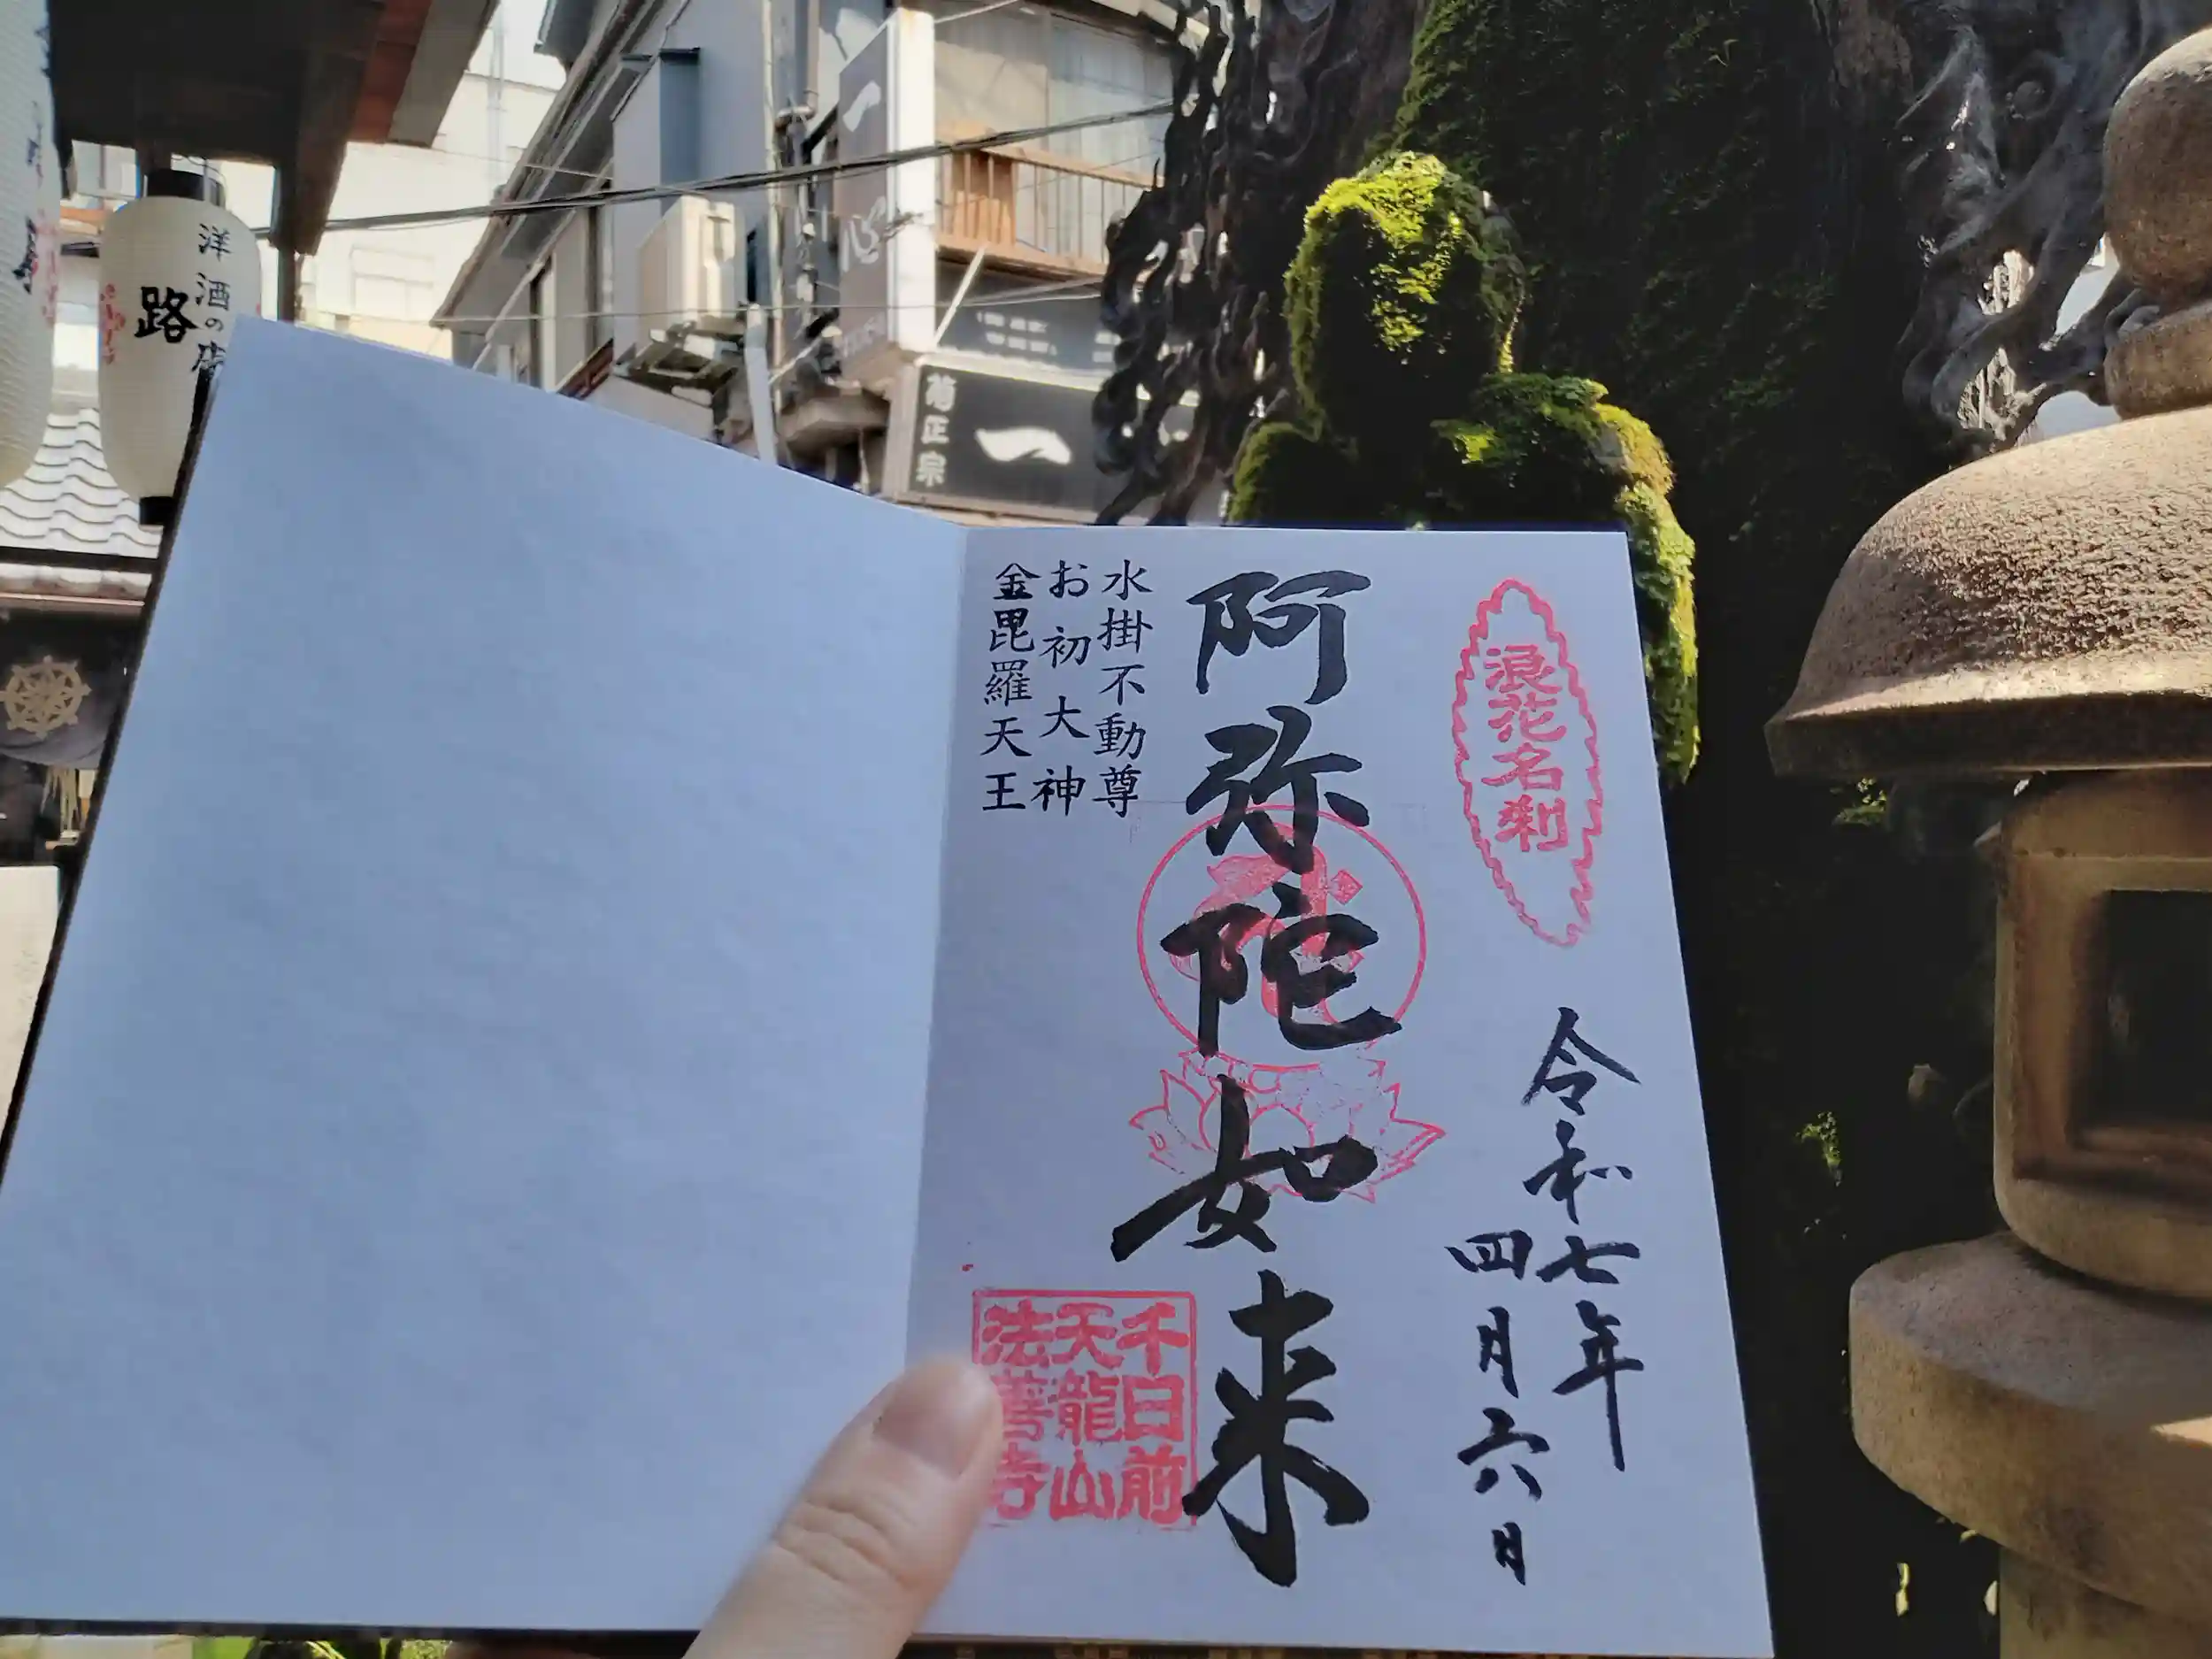 浪花名刹
令和七年
四月六日
阿弥陀如来
水掛不動尊
お初大神
金毘羅天王
千日前
天龍山
法善寺
洋酒の店
路
一
心
菊正宗
一